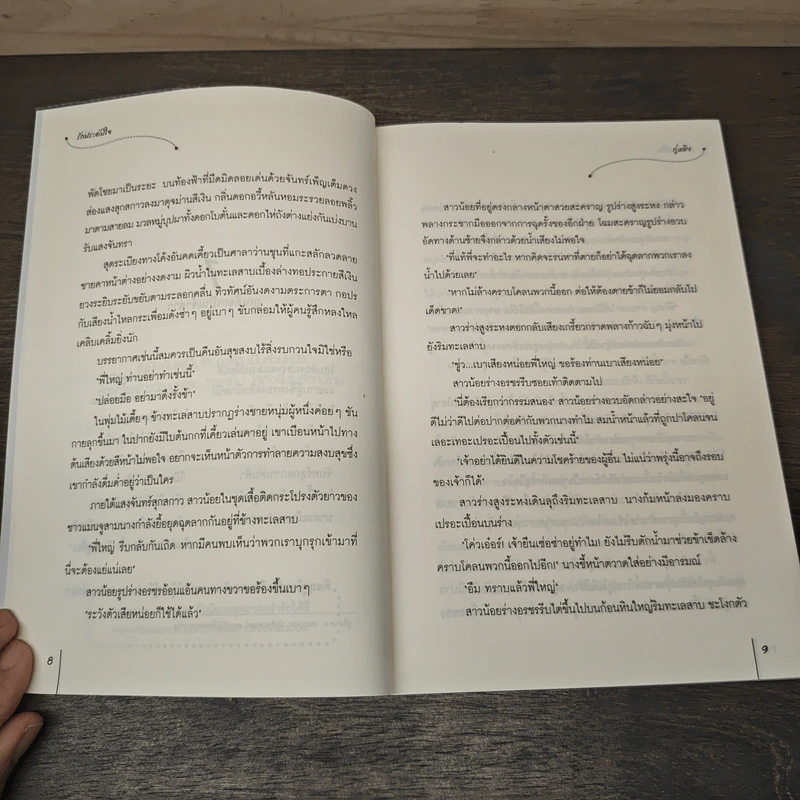 รักประดับใจ
พัดโชยมาเป็นระยะ บนท้องฟ้าที่มืดมิดลอยเด่นด้วยจันทร์เพ็ญเต็มดวง
ส่องแสงสุกสกาวลงมาดุจม่านสีเงิน กลิ่นดอกอวี้หลันหอมระรวยลอยพลิ้ว
มาตามสายลม มวลหมู่บุปผาทั้งดอกโบตั๋นและดอกไห่ถังต่างแย่งกันเบ่งบาน
รับแสงจันทรา
สุดระเบียงทางโค้งอันคดเคี้ยวเป็นศาลาว่านชุนที่แกะสลักลวดลาย
ชายคาหน้าต่างอย่างงดงาม ผิวน้ำในทะเลสาบเบื้องล่างทอประกายสีเงิน
ยวงระยิบระยับขยับตามระลอกคลื่น ทิวทัศน์อันงดงามตระการตา กอปร
กับเสียงน้ำไหลกระเพื่อมดังซ่าๆ อยู่เบาๆ ขับกล่อมให้ผู้คนรู้สึกหลงใหล
เคลิบเคลิ้มยิ่งนัก
บรรยากาศเช่นนี้สมควรเป็นคืนอันสุขสงบไร้สิ่งรบกวนใจมิใช่หรือ
"พี่ใหญ่ ท่านอย่าทำเช่นนี้"
"ปล่อยมือ อย่ามาดึงรั้งข้า"
ในพุ่มไม้เตี้ยๆ ข้างทะเลสาบปรากฏร่างชายหนุ่มผู้หนึ่งค่อยๆ ชัน
กายลุกขึ้นมา ในปากยังมีใบต้นกกที่เคี้ยวเล่นคาอยู่ เขาเบือนหน้าไปทาง
ต้นเสียงด้วยสีหน้าไม่พอใจ อยากจะเห็นหน้าตัวการทำลายความสงบสุขซึ่ง
เขากำลังดื่มด่ำอยู่ว่าเป็นใคร
ภายใต้แสงจันทร์สุกสกาว สาวน้อยในชุดเสื้อติดกระโปรงตัวยาวของ
ชาวแมนจูสามนางกำลังยื้อยุดฉุดลากกันอยู่ที่ข้างทะเลสาบ
"พี่ใหญ่ รีบกลับกันเถิด หากมีคนพบเห็นว่าพวกเราบุกรุกเข้ามาที่
นี่จะต้องแย่แน่เลย"
สาวน้อยรูปร่างอรชรอ้อนแอ้นคนทางขวาขอร้องขึ้นเบาๆ
"ระวังตัวเสียหน่อยก็ใช้ได้แล้ว"
8
กู้หลิง
สาวน้อยที่อยู่ตรงกลางหน้าตาสวยสะคราญ รูปร่างสูงระหง กล่าว
พลางกระชากมือออกจากการฉุดรั้งของอีกฝ่าย โฉมสะคราญรูปร่างอวบ
อัดทางด้านซ้ายจึงกล่าวด้วยน้ำเสียงไม่พอใจ
"ที่แท้พี่จะทำอะไร หากคิดจะรนหาที่ตายก็อย่าได้ฉุดลากพวกเราลง
น้ำไปด้วยเลย"
"หากไม่ล้างคราบโคลนพวกนี้ออก ต่อให้ต้องตายข้าก็ไม่ยอมกลับไป
เด็ดขาด!"
สาวร่างสูงระหงตอกกลับเสียงเกรี้ยวกราดพลางก้าวฉับๆ มุ่งหน้าไป
ยังริมทะเลสาบ
"ชู่ว...เบาเสียงหน่อยพี่ใหญ่ ขอร้องท่านเบาเสียงหน่อย"
สาวน้อยร่างอรชรรีบซอยเท้าติดตามไป
"นี่ต้องเรียกว่ากรรมสนอง" สาวน้อยร่างอวบอัดกล่าวอย่างสะใจ "อยู่
ดีไม่ว่าดีไปต่อปากต่อคำกับพวกนางทำไม สมน้ำหน้าแล้วที่ถูกปาโคลนจน
เลอะเทอะเปรอะเปื้อนไปทั้งตัวเช่นนี้"
"เจ้าอย่าได้ยินดีในความโชคร้ายของผู้อื่น ไม่แน่ว่าพรุ่งนี้อาจถึงรอบ
ของเจ้าก็ได้"
สาวร่างสูงระหงเดินลุถึงริมทะเลสาบ นางก้มหน้าลงมองคราบ
เปรอะเปื้อนบนร่าง
"โค่วเอ๋อร์! เจ้ายืนเซ่อซ่าอยู่ทำไม! ยังไม่รีบตักน้ำมาช่วยข้าเช็ดล้าง
คราบโคลนพวกนี้ออกไปอีก!" นางชี้หน้าตวาดใส่อย่างมีอารมณ์
"อืม ทราบแล้วพี่ใหญ่"
สาวน้อยร่างอรชรรีบไต่ขึ้นไปบนก้อนหินใหญ่ริมทะเลสาบ ชะโงกตัว
9